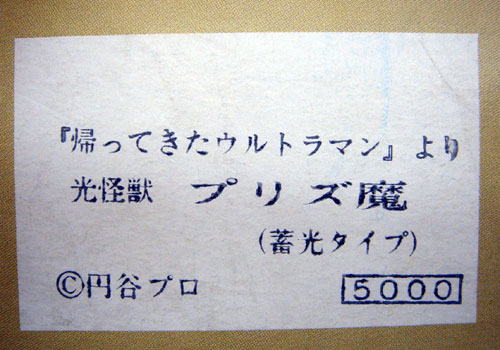 『帰ってきたウルトラマン』より
光怪獣 プリズ魔
(蓄光タイプ)
©円谷プロ 5000